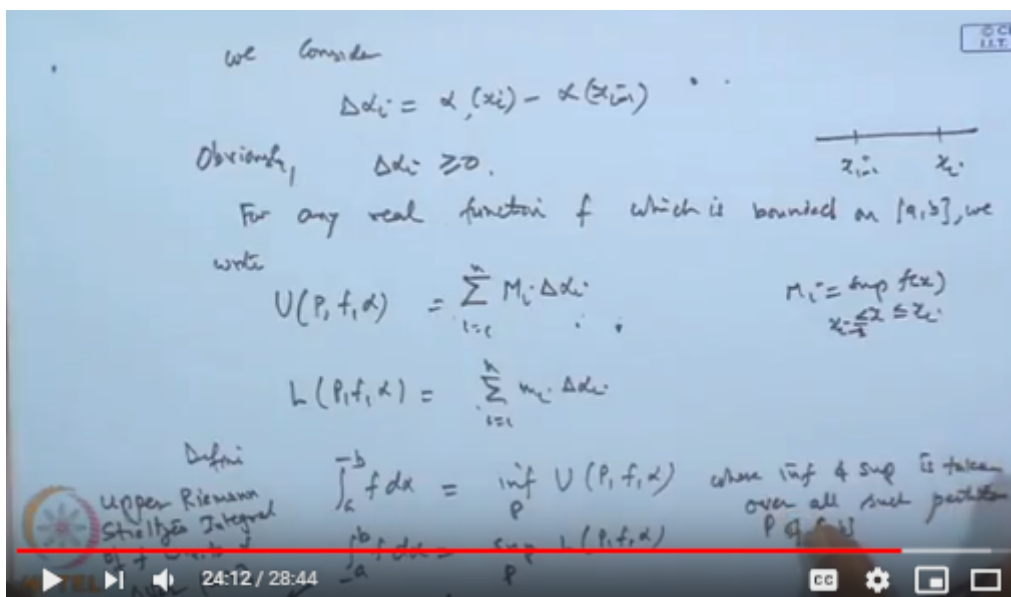 we consider
Δαi = α(xi) - α(xi-1)
Obviously, Δαi ≥ 0.
xi-1 xi
For any real function f which is bounded on [a,b], we
write
U(P,f,α) = ∑ Mi Δαi
n
i=1
Mi = sup f(x)
xi-1 ≤ x ≤ xi
L(P,f,α) = ∑ mi Δαi
n
i=1
Define
Upper Riemann
Stieltjes Integral
of f
∫a b f dα = inf U(P,f,α)
P
where inf & sup is taken
over all such partition
P of
∫a b f dα = sup L(P,f,α)
P
24:12 / 28:44
CC